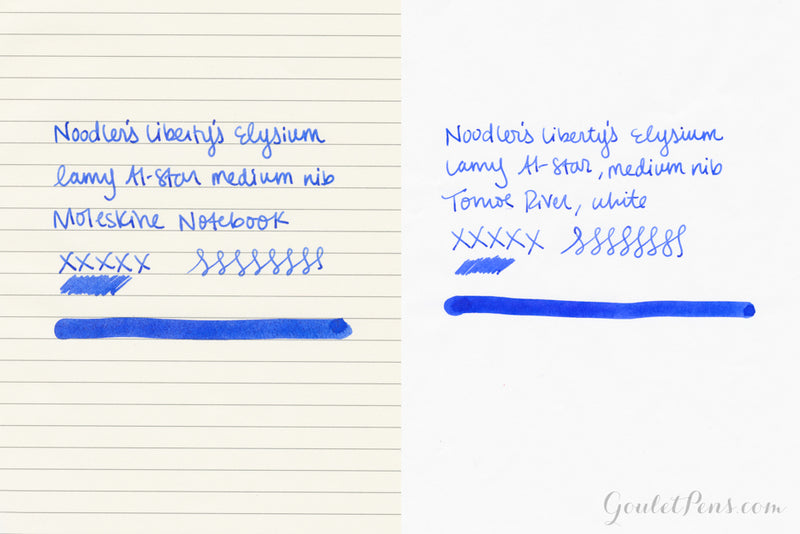 Noodler's Liberty's Elysium
Lamy Al-Star medium nib
Moleskine Notebook
XXXXX SSSSSSSS
Noodler's Liberty's Elysium
Lamy Al-Star, medium nib
Tomoe River, white
XXXXX SSSSSSSS
GouletPens.com